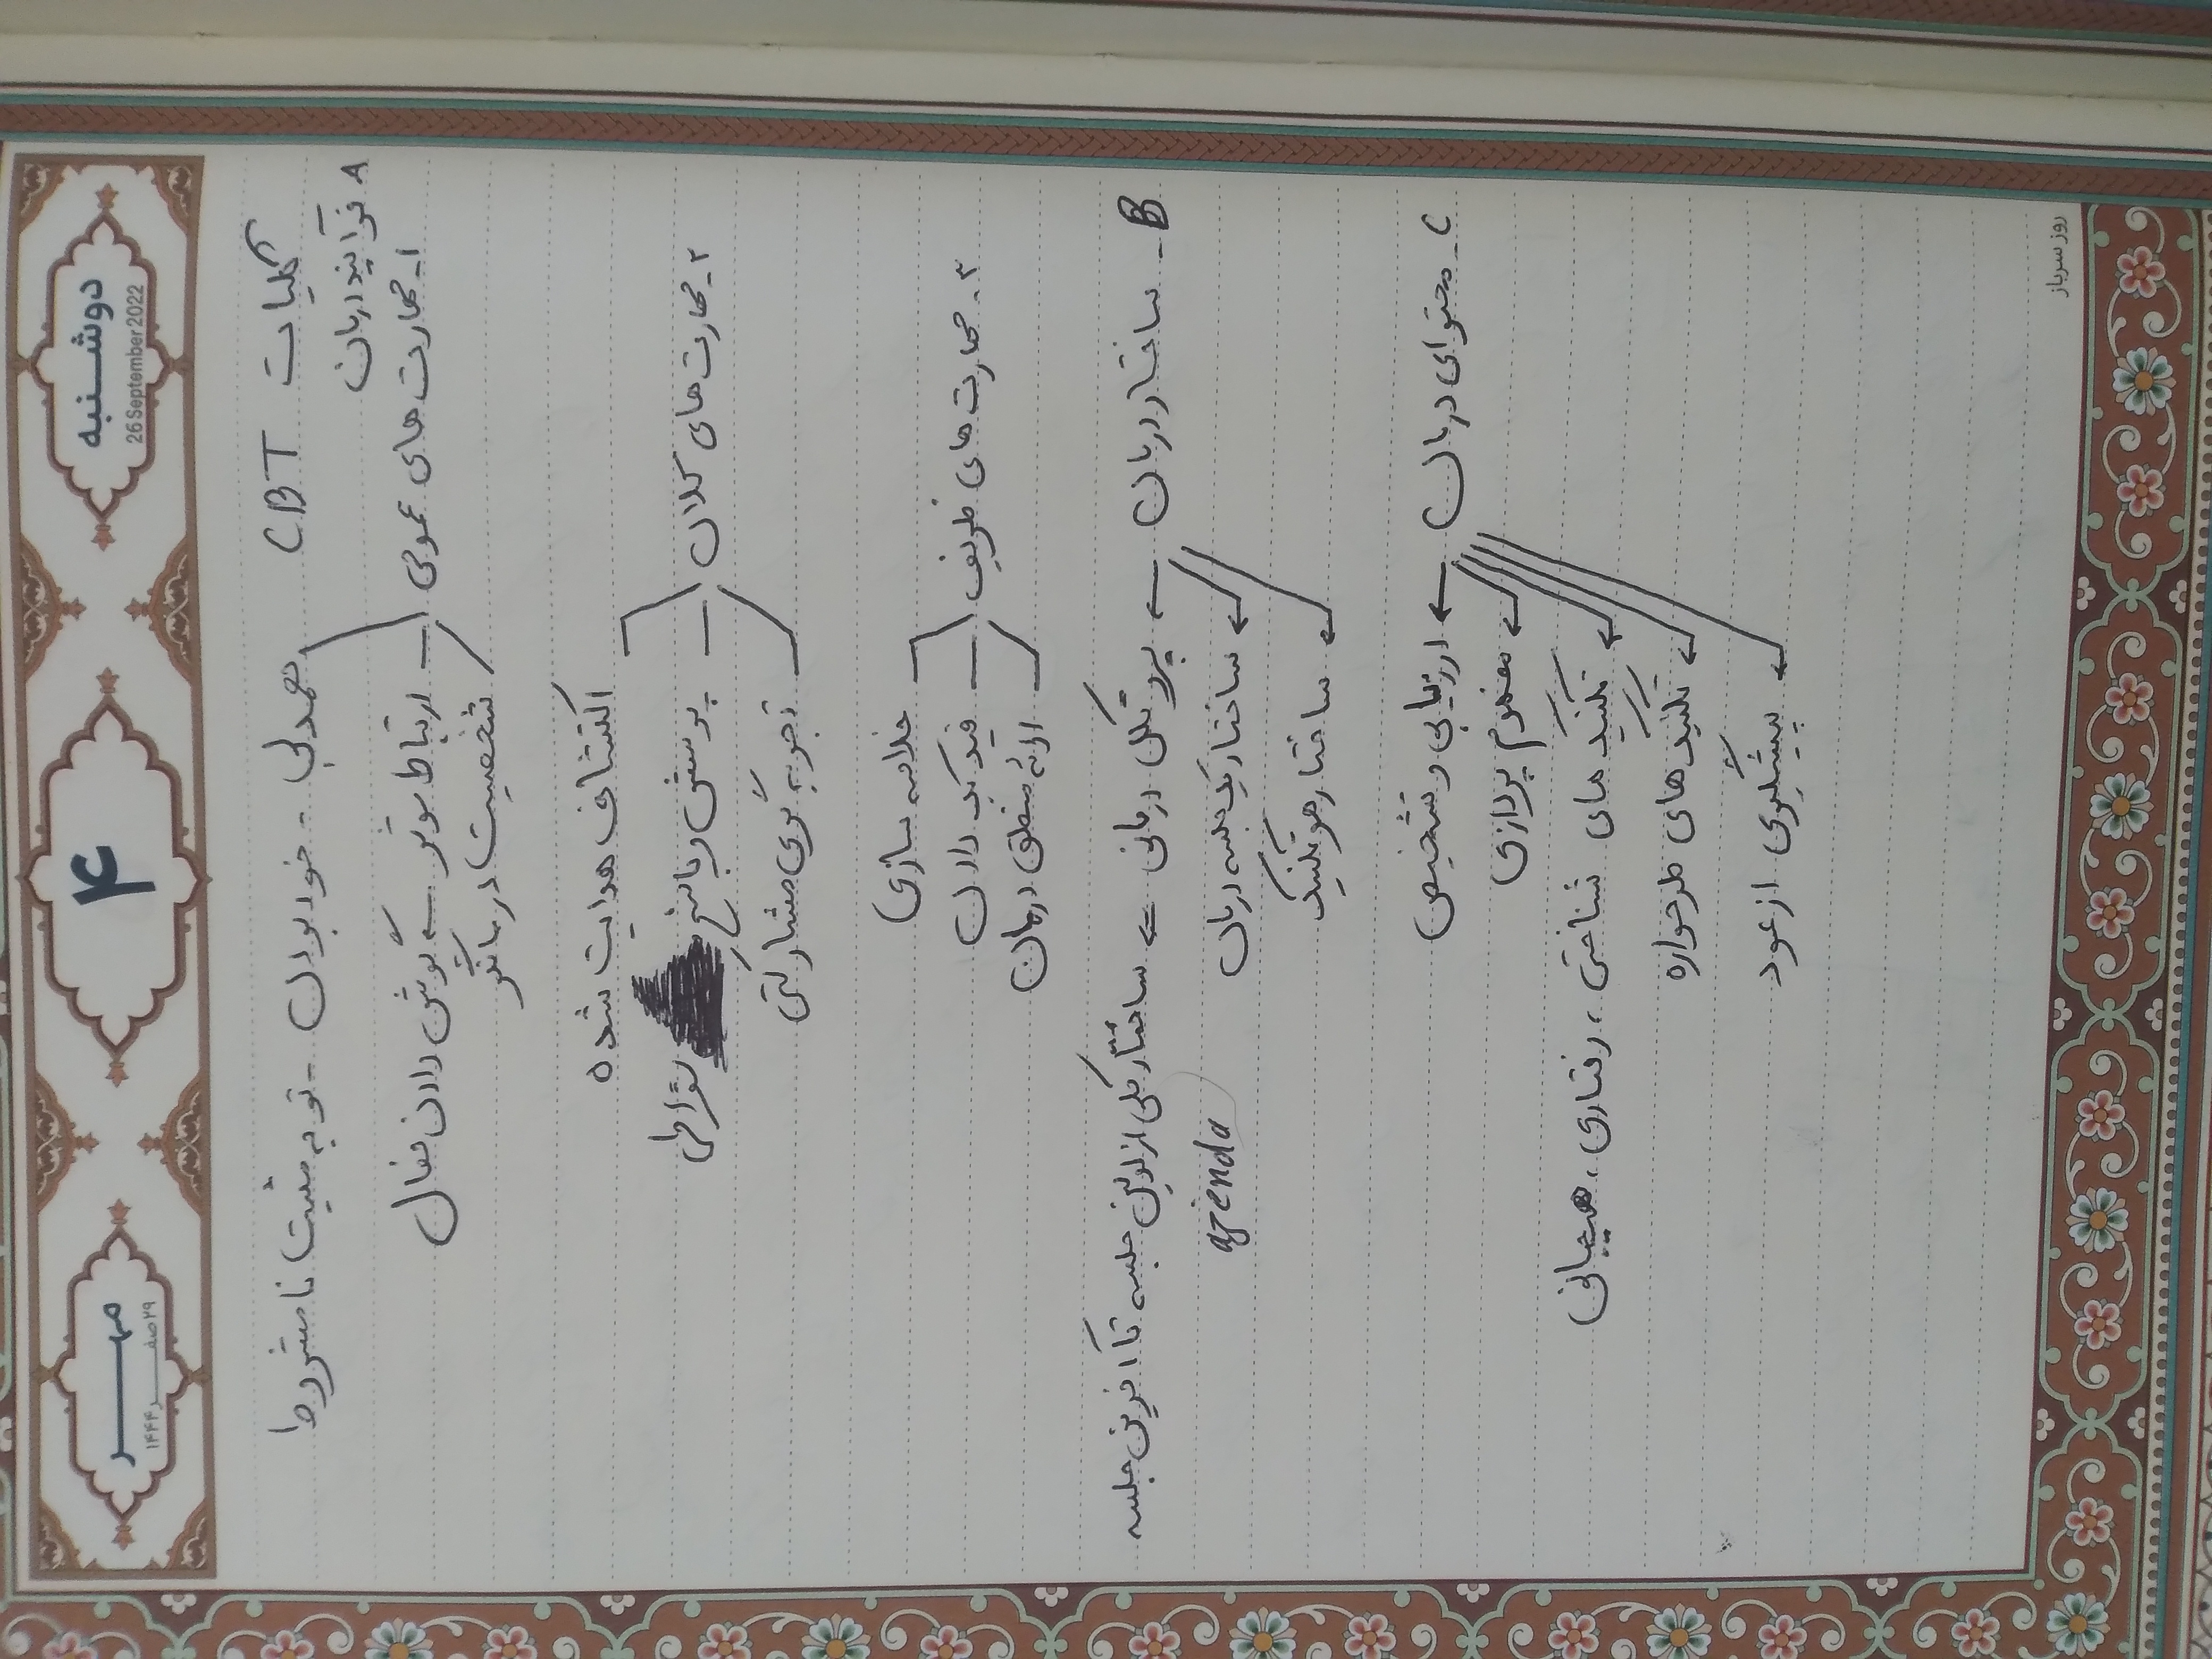 دوشنبه
26 September 2022
۴
مهر
۲۹ صفر ۱۴۴۴
کلیات CBT
A. فرآیند درمان
همدلی - خود بودن - توجه مثبت نامشروط
۱- مهارت های عمومی
ارتباط موثر ← گوش دادن فعال
شخصیت درمانگر
اکتشاف هدایت شده
۲- مهارت های کلان
پرسش و پاسخ سقراطی
تجربه گری مشارکتی
خلاصه سازی
۳- مهارت های ظریف
فیدبک دادن
ارائه منطق درمان
B- ساختار درمان ← پروتکل درمانی = ساختار کلی از اولین جلسه تا آخرین جلسه
ساختار یک جلسه درمان agenda
ساختار هر تکنیک
C- محتوای درمان ← ارزیابی و تشخیص
مفهوم پردازی
تکنیک های شناختی، رفتاری، هیجانی
تکنیک های طرحواره
پیشگیری از عود
روز سرباز